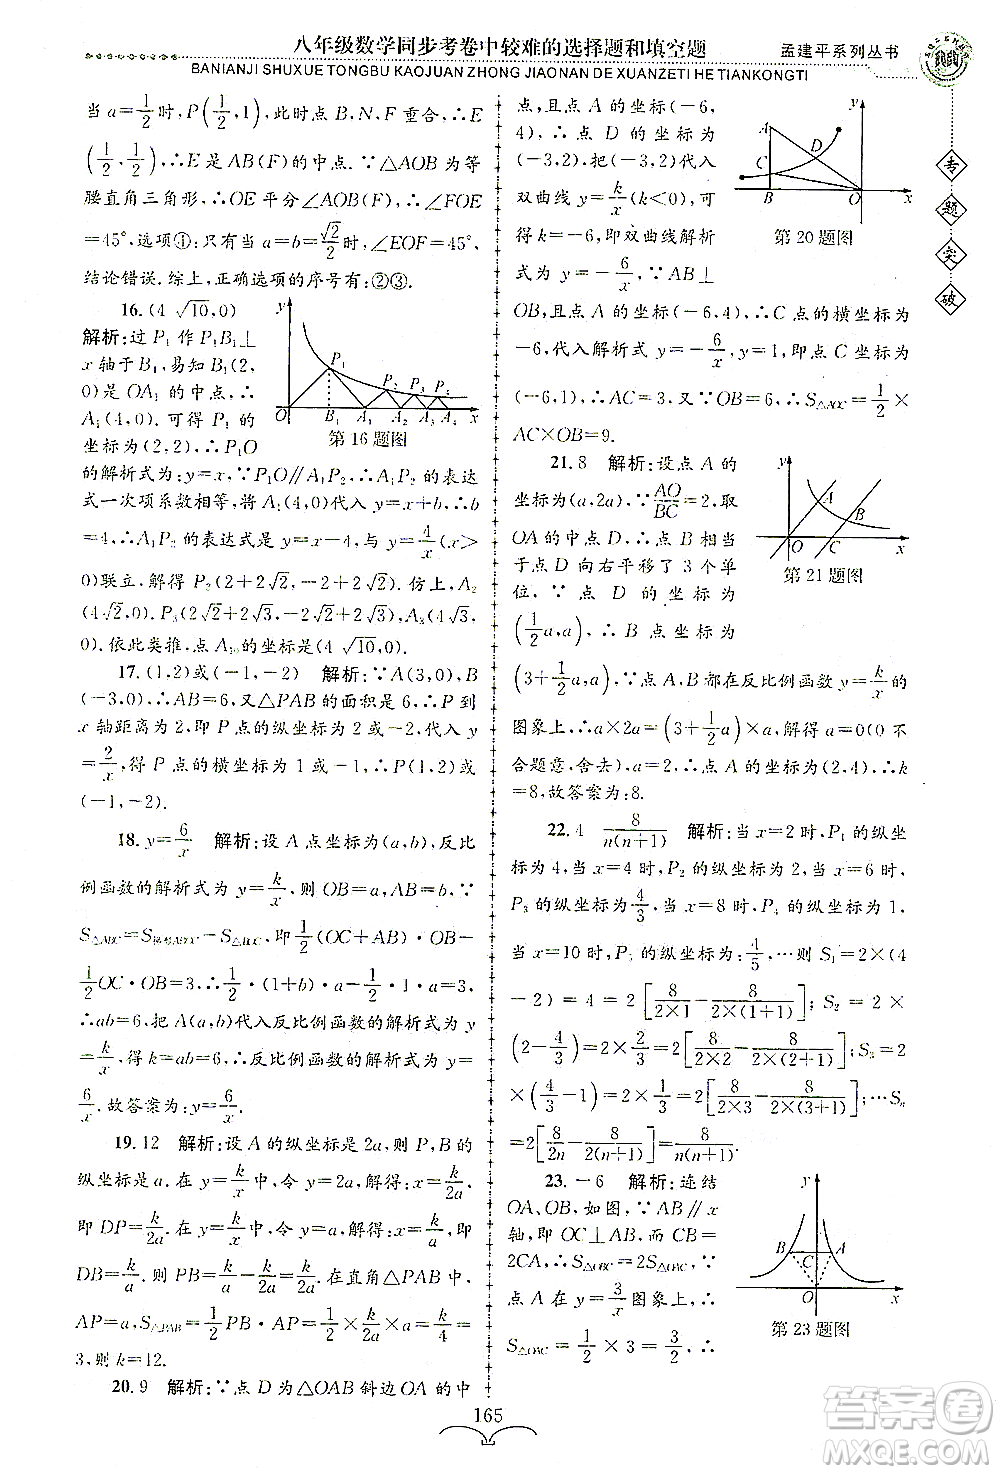 八年级数学同步考卷中较难的选择题和填空题
孟建平系列丛书
BANIANJI SHUXUE TONGBU KAOJUAN ZHONG JIAONAN DE XUANZETI HE TIANKONGTI
专题突破
当 a=1/2 时,P(1/2,1),此时点 B、N、F 重合,∴E
(1/2,1/2),∴E 是 AB(F) 的中点.∵△AOB 为等
腰直角三角形,∴OE 平分∠AOB(F),∴∠FOE
=45°.选项①:只有当 a=b=√2/2 时,∠EOF=45°,
结论错误.综上,正确选项的序号有:②③.
16.(4√10,0)
解析:过 P₁ 作 P₁B₁⊥
x 轴于 B₁,易知 B₁(2,
0)是 OA₁ 的中点,∴
A₁(4,0).可得 P₁ 的坐
标为(2,2),∴P₁O
的解析式为:y=x,∵P₁O∥A₁P₂,∴A₁P₂的解析
式一次项系数相等,将 A₁(4,0)代入 y=x+b,∴b
=-4,∴A₁P₂ 的表达式是 y=x-4,与 y=4/x(x>
0)联立,解得 P₂(2+2√2,-2+2√2).仿上,A₂
(4√2,0).P₃(2√2+2√3,-2√2+2√3),A₃(4√3,
0).依此类推,点 A₁₀的坐标是(4√10,0).
第16题图
17.(1,2)或(-1,-2) 解析:∵A(3,0),B
(-3,0),∴AB=6,又△PAB 的面积是 6,∴P 到
x 轴距离为 2,即 P 点的纵坐标为 2 或-2,代入 y
=2/x,得 P 点的横坐标为 1 或-1,∴P(1,2)或
(-1,-2).
18.y=6/x 解析:设 A 点坐标为(a,b),反比
例函数的解析式为 y=k/x,则 OB=a,AB=b,∵
S△ABC=S梯形ABOC-S△BOC,即 1/2(OC+AB)·OB-
1/2 OC·OB=1/2(1+b)·a-1/2·1·a=1/2 ab=3,
∴ab=6,把 A(a,b)代入反比例函数的解析式为 y
=k/x,得 k=ab=6,∴反比例函数的解析式为 y=
6/x.故答案为:y=6/x.
19.12 解析:设 A 的纵坐标是 2a,则 P、B 的
纵坐标为 a.在 y=k/x 中,令 y=2a,解得:x=k/2a,
即 DP=k/2a.在 y=k/x 中,令 y=a,解得:x=k/a,则
DB=k/a.则 PB=k/a-k/2a=k/2a.在直角△PAB 中,
AP=a,S△PAB=1/2 PB·AP=1/2×k/2a×a=k/4=
3,则 k=12.
20.9 解析:∵点 D 为△OAB 斜边 OA 的中
点,且点 A 的坐标(-6,
4),∴点 D 的坐标为
(-3,2).把(-3,2)代入
双曲线 y=k/x(k<0),可
得 k=-6,即双曲线解析
式为 y=-6/x,∵AB⊥
第20题图
OB,且点 A 的坐标(-6,4),∴C 点的横坐标为
-6,代入解析式 y=-6/x,y=1,即点 C 坐标为
(-6,1),∴AC=3.又∵OB=6,∴S△AOC=1/2×
AC×OB=9.
21.8 解析:设点 A 的
坐标为(a,2a),∵AO/BC=2,取
OA 的中点 D,∴点 B 相当
于点 D 向右平移了 3 个单
位,∵点 D 的坐标为
(1/2a,a),∴B 点坐标为
第21题图
(3+1/2a,a),∵点 A、B 都在反比例函数 y=k/x 的
图象上,∴a×2a=(3+1/2a)×a,解得:a=0(0 不
合题意,舍去),a=2,∴点 A 的坐标为(2,4),∴k
=8.故答案为:8.
22.4 8/n(n+1) 解析:当 x=2 时,P₁ 的纵坐
标为 4,当 x=4 时,P₂ 的纵坐标为 2,当 x=6 时,
P₃ 的纵坐标为 4/3,当 x=8 时,P₄ 的纵坐标为 1,
当 x=10 时,P₅ 的纵坐标为 4/5,…则 S₁=2×(4
-2)=4=2[8/2×1-8/2×(1+1)];S₂=2×
(2-4/3)=2×2/3=2[8/2×2-8/2×(2+1)];S₃=2
×(4/3-1)=2×1/3=2[8/2×3-8/2×(3+1)];Sₙ
=2[8/2n-8/2(n+1)]=8/n(n+1).
23.-6 解析:连结
OA、OB,如图,∵AB∥x
轴,∴OC⊥AB,∵CB=
2CA,∴S△OBC=2S△OAC,∵
点 A 在 y=3/x 图象上,∴
S△OAC=1/2×3=3/2,∴
第23题图
165